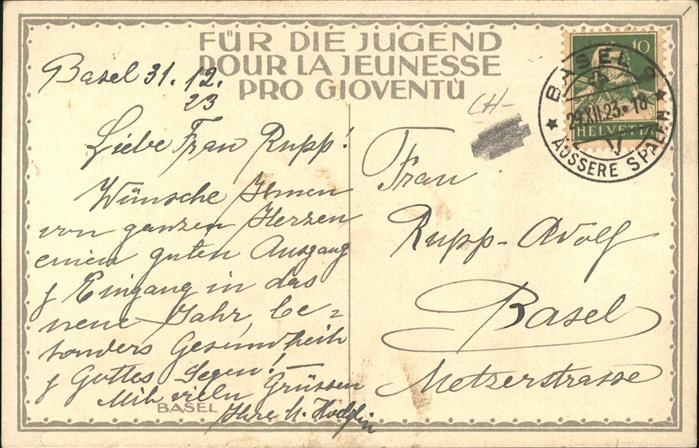 FÜR DIE JUGEND
POUR LA JEUNESSE
PRO GIOVENTÙ
Basel 31. 12.
23
Liebe Frau Rupp!
Wünsche Ihnen
von ganzen Herzen
einen guten Ausgang
& Eingang in das
neue Jahr be=
sonders Gesundheit
& Gottes Segen!
Mit vielen Grüssen
Ihre
BASEL
CH-
10
HELVETIA
BASEL 9
29.XII.23-18
ÄUSSERE SPALEN
Frau
Rupp-Adolf
Basel
Metzerstrasse